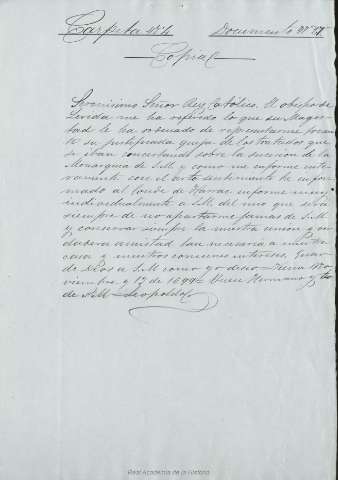 Carpeta nº 1 Documento nº 27
Copia
Serenisimo Señor Rey Catolico. El obispo de
Lerida me ha referido lo que su Mages-
tad le ha ordenado de representarme tocan-
te su justificada queja de los tratados que
se iban concertando sobre la sucesion de la
Monarquia de S.M. y como me informe ente-
ramente con el
mado al Conde de Harrac informe mas
individualmente a S.M. del mio que será
siempre de no apartarme jamas de S.M.
y conservar siempre la nuestra union y ver-
dadera amistad tan necesaria a nuestra
casa y nuestros comunes intereses. Guar-
de Dios a S.M. como yo deseo. Viena No-
viembre, y 13 de 1699. Buen Hermano y tio
de S.M. Leopoldo
Real Academia de la Historia